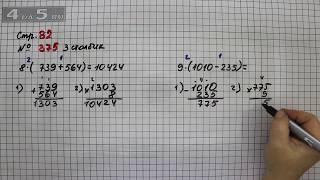 4 5
Стр. 82
№ 375 3 столбик
2 1
8·(739+564)=10424
1) +739
564
1303
2) ×1303
8
10424
2 1
9·(1010-235)=
1) -1010
235
775
2) 4
×775
5
5